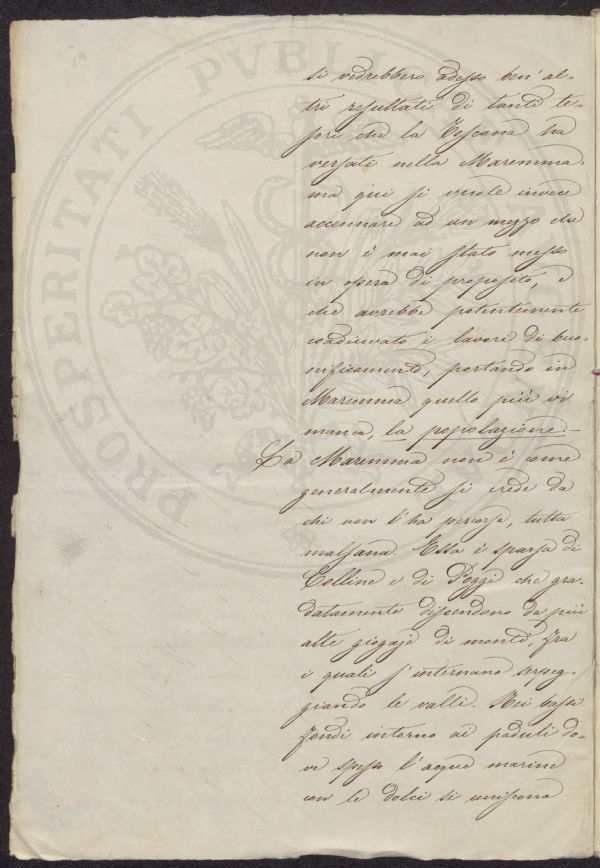 PROSPERITATI PVBLICAE
si vedrebbero adesso ben' al-
tri resultati di tanti te-
sori che la Toscana ha
versati nella Maremma.
ma qui si vuole invece
accennare ad un mezzo che
non è mai stato messo
in opera di proposito, e
che avrebbe potentemente
coadiuvato i lavori di buo-
nificamento, portando in
Maremma quello più vi
manca, la popolazione. -
La Maremma non è come
generalmente si crede da
chi non l'ha percorsa, tutta
malsana. Essa è sparsa di
Colline e di Poggi che gra-
datamente discendono da più
alte giogaje di monti, fra
i quali s'internano serpeg-
giando le valli. Nei bassi
fondi intorno ai paduli do-
ve spesso l'acque marine
con le dolci si uniscono